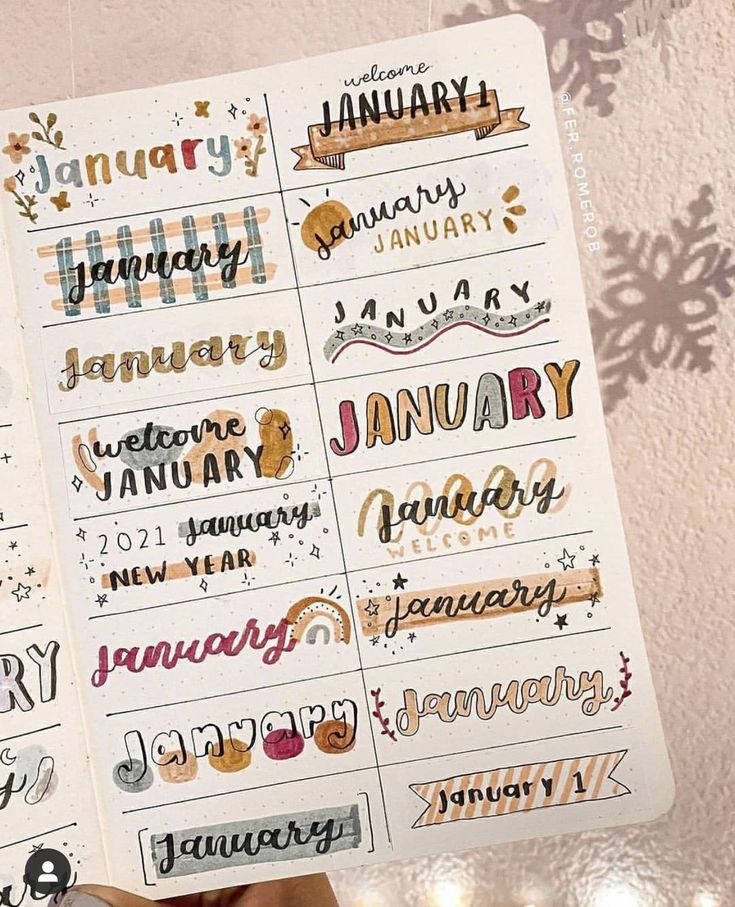 January
January
January
welcome
JANUARY
2021 January
NEW YEAR
January
January
January
welcome
JANUARY 1
January
JANUARY
JANUARY
JANUARY
January
WELCOME
January
January
January 1
@FER.ROMEROB
RY